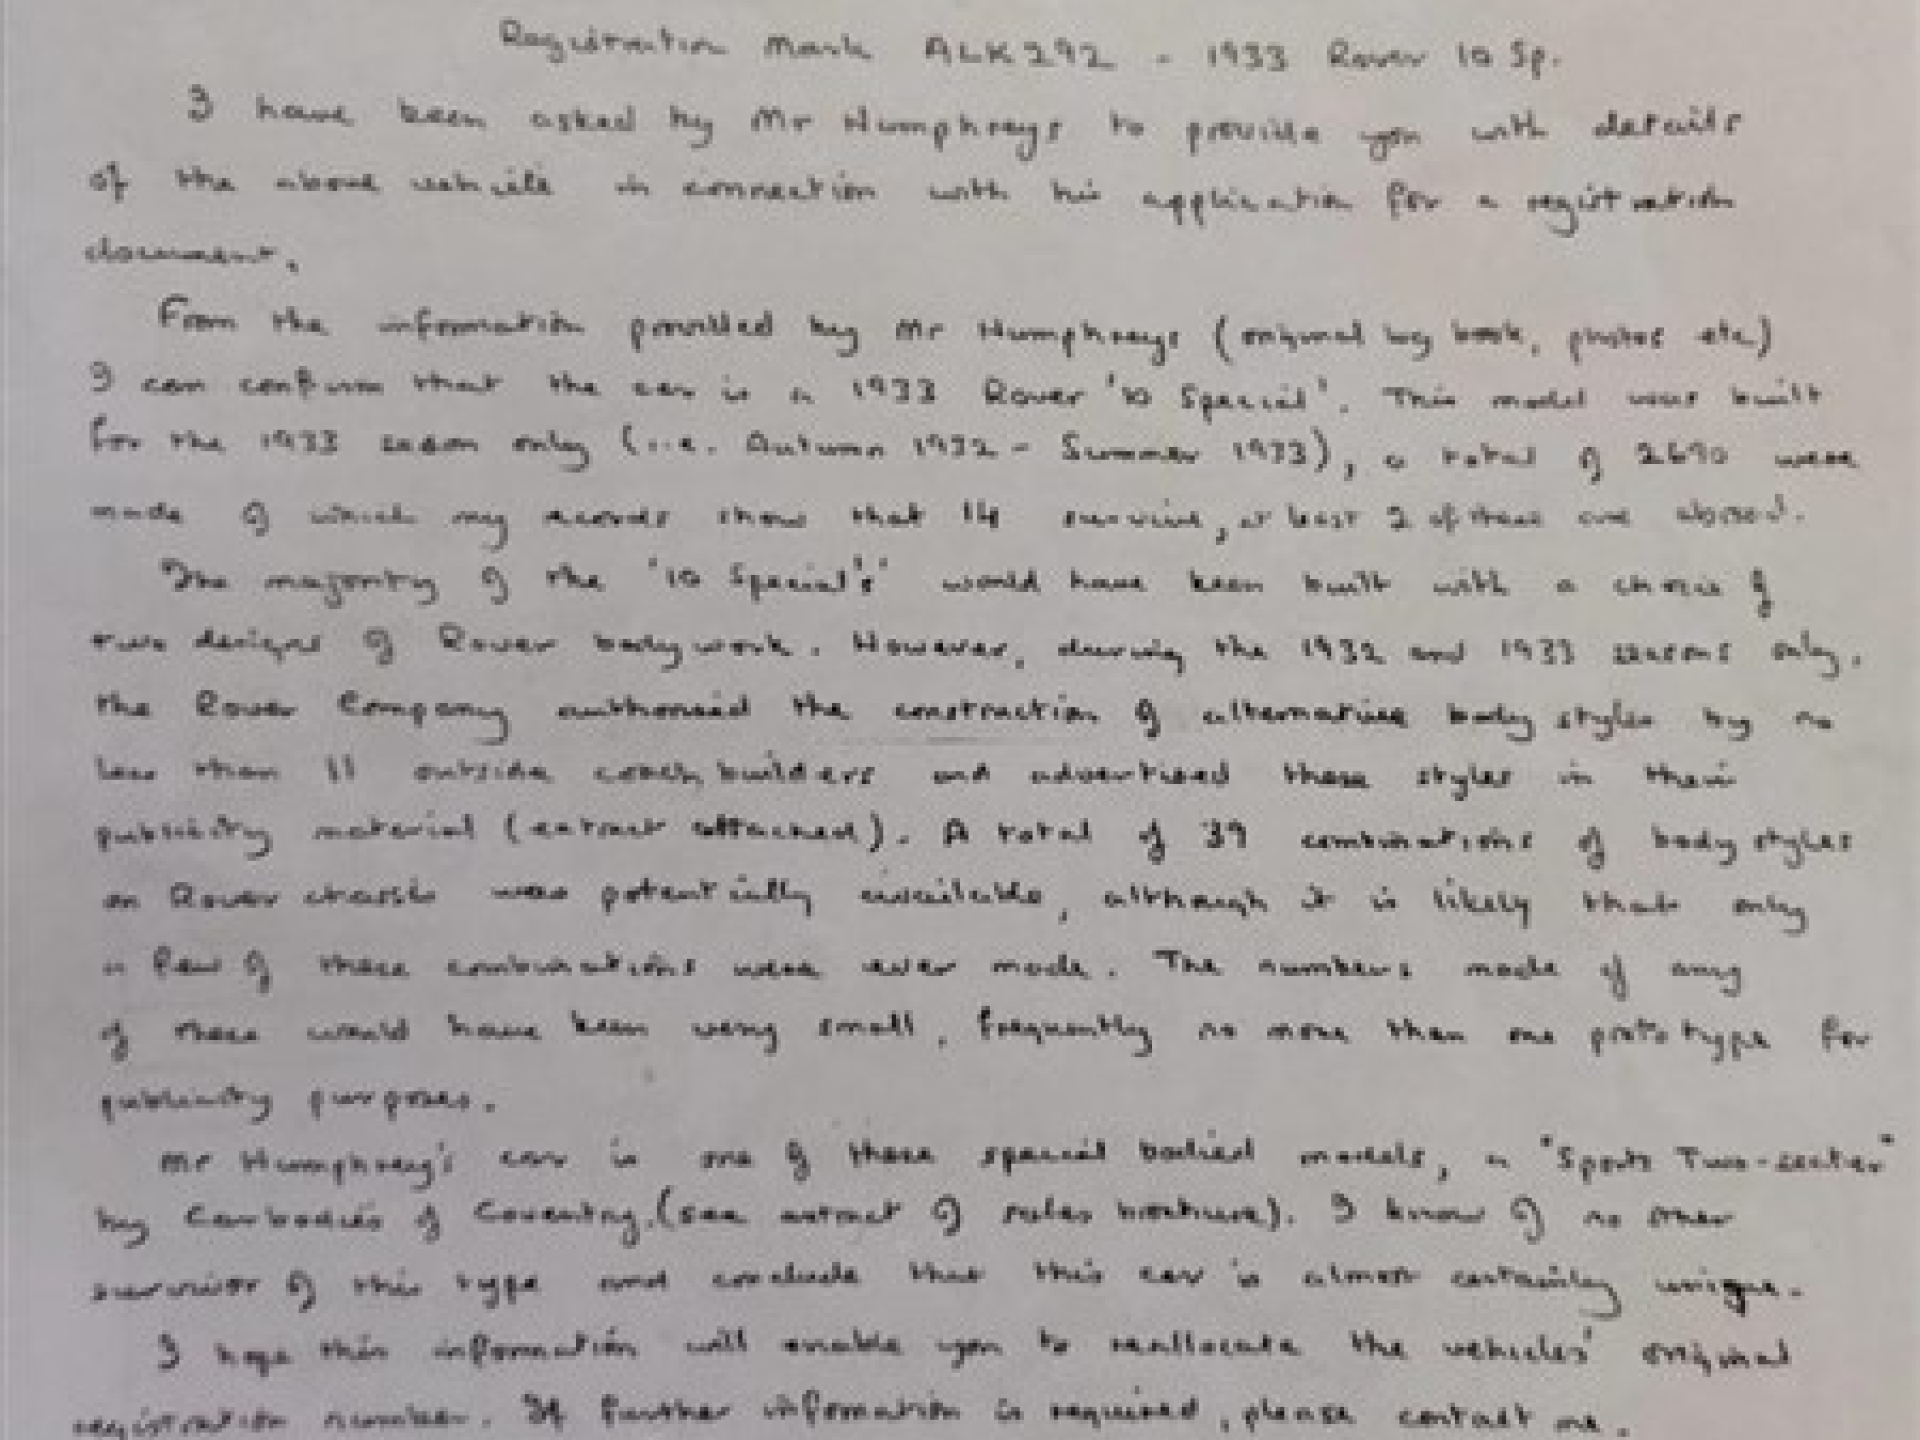 Registration Mark ALK292 - 1933 Rover 10 Sp.
I have been asked by Mr Humphreys to provide you with details
of the above vehicle in connection with his application for a registration
document.
From the information provided by Mr Humphreys (original log book, photos etc)
I can confirm that the car is a 1933 Rover '10 Special'. This model was built
for the 1933 season only (i.e. Autumn 1932 - Summer 1933), a total of 2690 were
made of which my records show that 14 survive, at least 2 of these are abroad.
The majority of the '10 Special's' would have been built with a choice of
two designs of Rover bodywork. However, during the 1932 and 1933 seasons only,
the Rover Company authorised the construction of alternative body styles by no
less than 11 outside coachbuilders and advertised these styles in their
publicity material (extract attached). A total of 39 combinations of body styles
on Rover chassis was potentially available, although it is likely that only
a few of these combinations were ever made. The numbers made of any
of these would have been very small, frequently no more than one prototype for
publicity purposes.
Mr Humphrey's car is one of these special bodied models, a "Sports Two-seater"
by Carbodies of Coventry, (see extract of sales brochure). I know of no other
survivor of this type and conclude that this car is almost certainly unique.
I hope this information will enable you to reallocate the vehicles' original
registration number. If further information is required, please contact me.